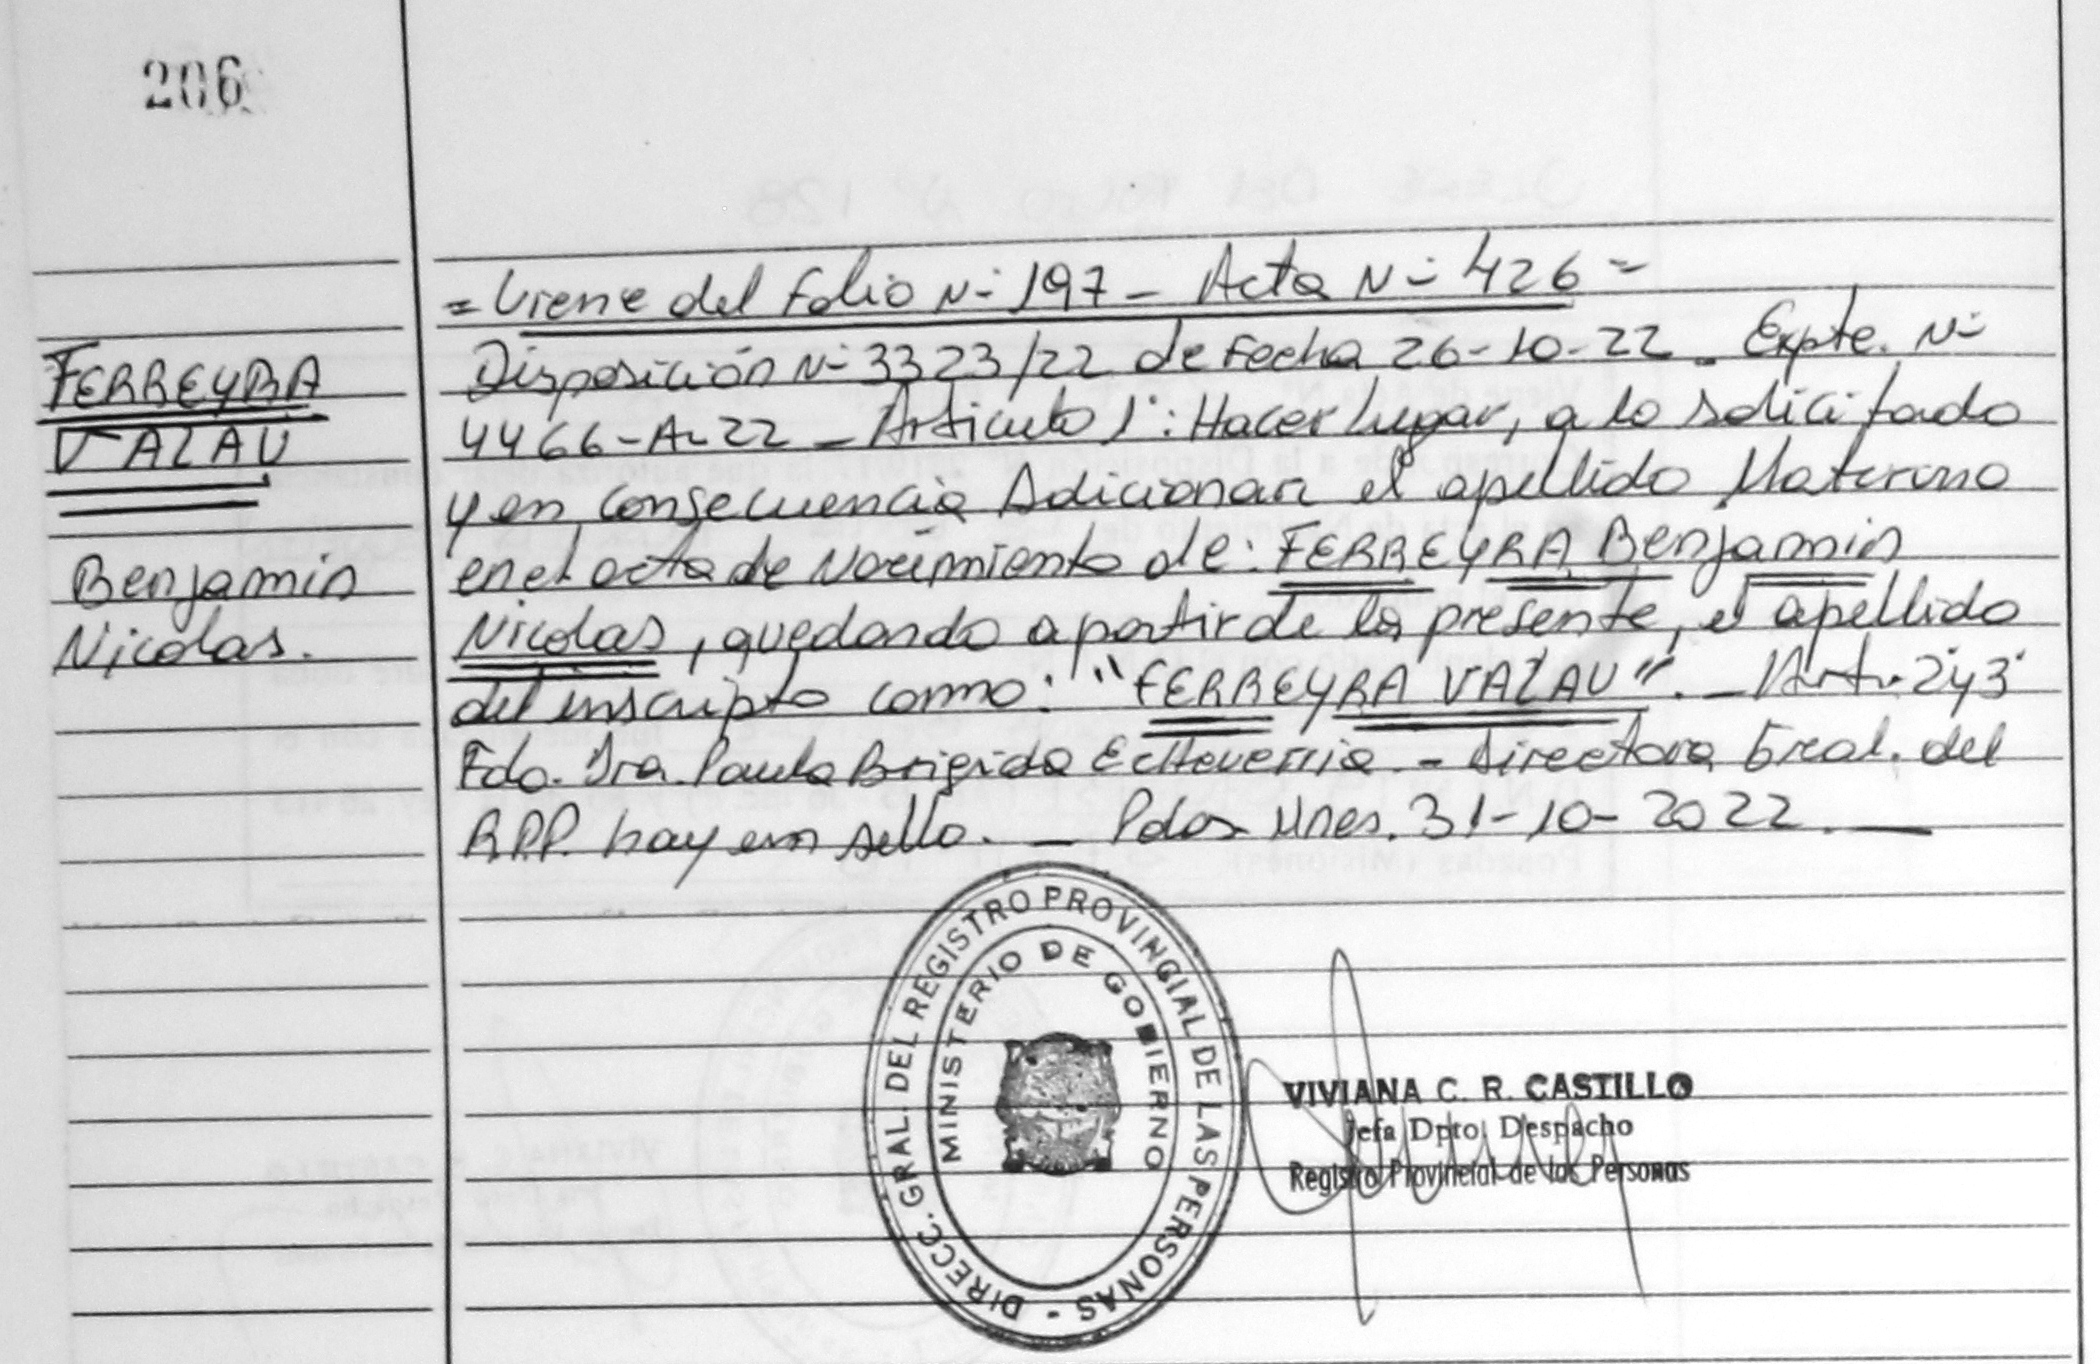 206
= Viene del Folio N- 197 - Acta N- 426 =
FERREYRA
VALAU
Benjamin
Nicolas.
Disposición N- 3323/22 de Fecha 26-10-22. Expte. N-
4466-A-22 - Articulo 1°: Hacer lugar, a lo solicitado
y en consecuencia Adicionar el apellido Materno
en el acta de Nacimiento de: FERREYRA Benjamin
Nicolas, quedando a partir de la presente, el apellido
del inscripto como: "FERREYRA VALAU". - Art. 2° y 3°
Fdo. Dra. Paula Brigida Echeverria. - Directora Gral. del
R.P.P. hay un sello. - Pdas Mnes. 31-10-2022.
DIRECC. GRAL. DEL REGISTRO PROVINCIAL DE LAS PERSONAS -
MINISTERIO DE GOBIERNO
VIVIANA C. R. CASTILLO
Jefa Dpto. Despacho
Registro Provincial de las Personas